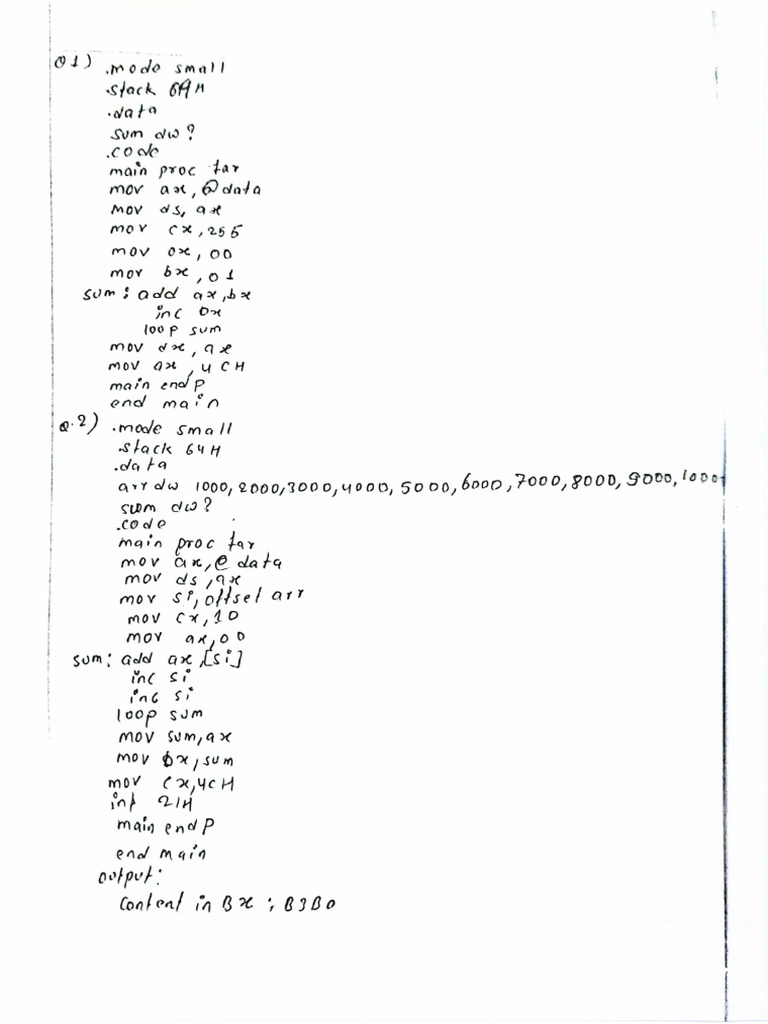 Q1) .mode small
.stack 64H
.data
sum dw?
.code
main proc far
mov ax,@data
mov ds, ax
mov cx,255
mov ax,00
mov bx,01
sum: add ax,bx
inc bx
loop sum
mov dx, ax
mov ax, 4CH
main endp
end main
Q.2) .mode small
.stack 64H
.data
arr dw 1000,2000,3000,4000,5000,6000,7000,8000,9000,1000
sum dw?
.code
main proc far
mov ax,@data
mov ds,ax
mov si,offset arr
mov cx,10
mov ax,00
sum: add ax,[si]
inc si
inc si
loop sum
mov sum,ax
mov bx,sum
mov cx,4CH
int 21H
main endp
end main
output:
Content in BX : B3B0